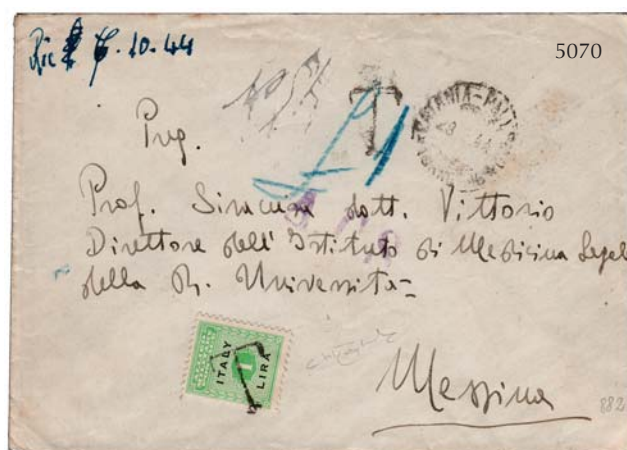 Ric 7.10.44
5070
T
L 1
Preg.
Prof. Siracusa dott. Vittorio
Direttore dell'Istituto di Medicina Legale
della R. Università
ITALY
1
LIRA
Messina
882